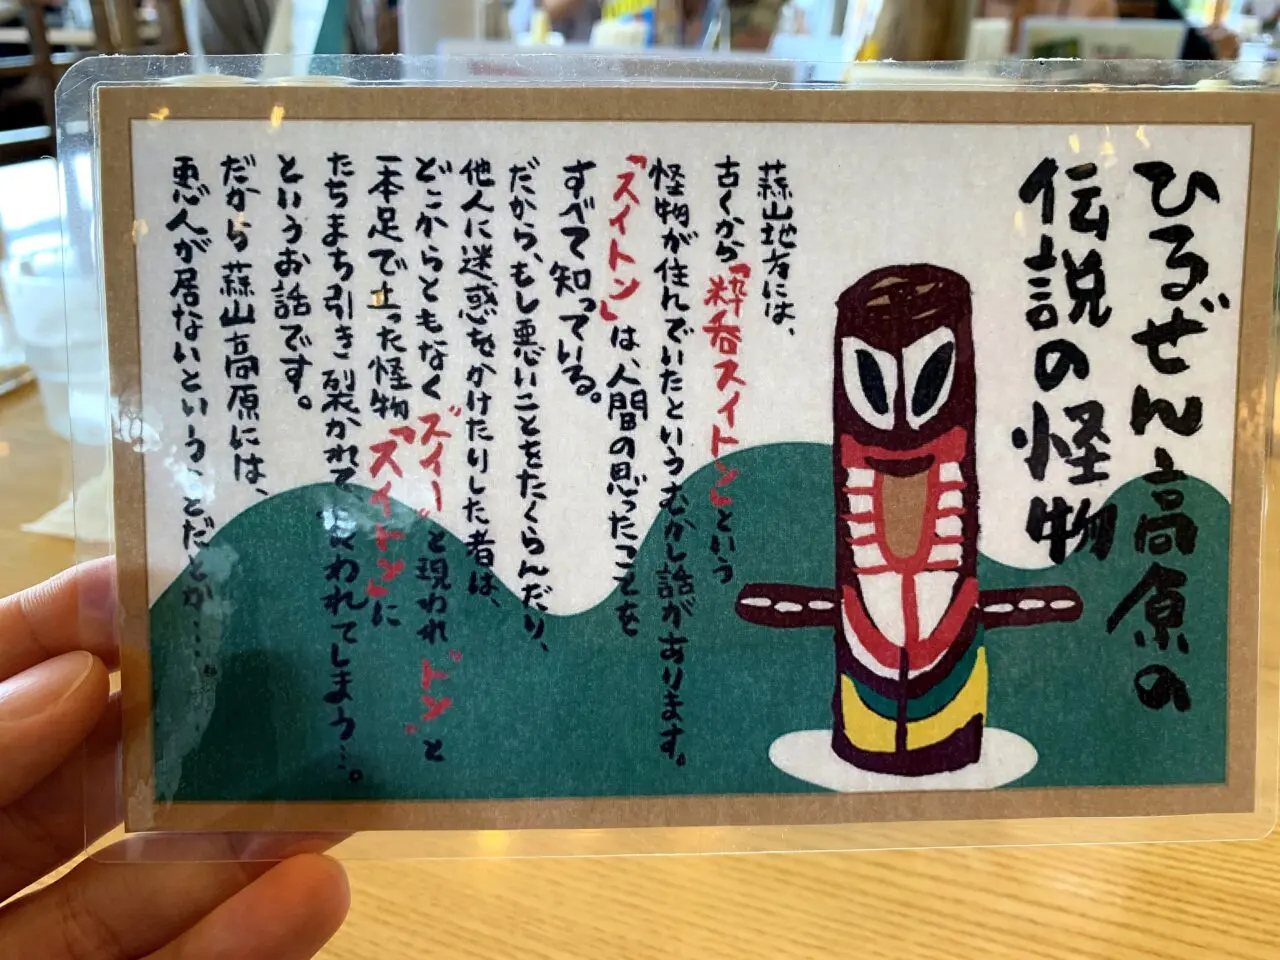 ひるぜん高原の
伝説の怪物
蒜山地方には、
古くから「粋呑スイトン」という
怪物が住んでいたというむかし話があります。
「スイトン」は、人間の思ったことを
すべて知っている。
だから、もし悪いことをたくらんだり、
他人に迷惑をかけたりした者は、
どこからともなく“スイー”と現われ“トン”と
一本足で立った怪物「スイトン」に
たちまち引き裂かれて食われてしまう…。
というお話です。
だから蒜山高原には、
悪人が居ないということだとか….